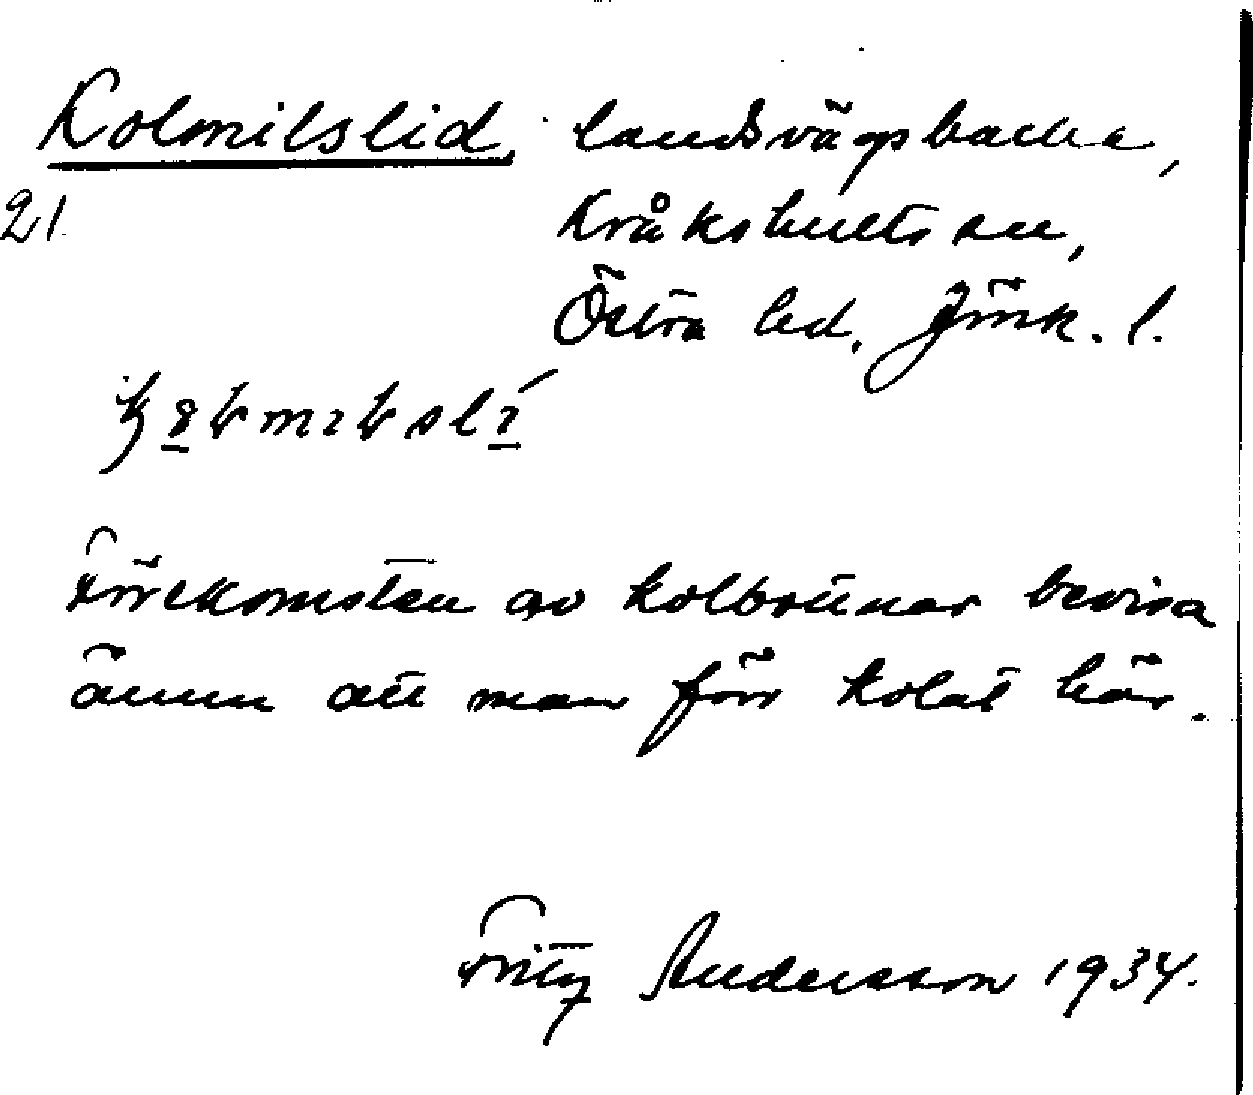 Kolmilslid, landsvägsbacke,
21.
Kråkshults sn,
Östra hd. Jönk. l.
Förekomsten av kolbottnar bevisa
ännu att man förr kolat här.
Fritz Andersson 1934.